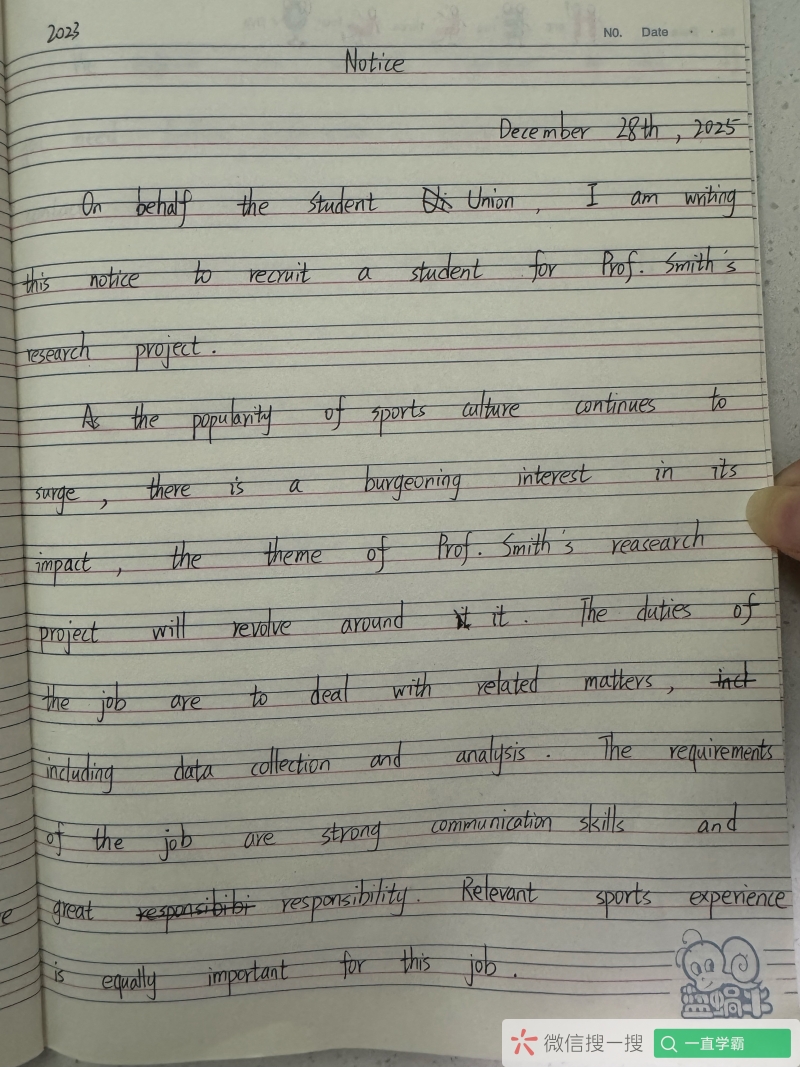 2023
NO. Date
Notice
December 28th, 2025
On behalf the student Union, I am writing
this notice to recruit a student for Prof. Smith's
research project.
As the popularity of sports culture continues to
surge, there is a burgeoning interest in its
impact, the theme of Prof. Smith's reasearch
project will revolve around it. The duties of
the job are to deal with related matters, incl
including data collection and analysis. The requirements
of the job are strong communication skills and
great responsibibi responsibility. Relevant sports experience
is equally important for this job.
微信搜一搜
一直学霸